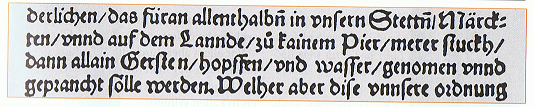 derlichen/das füran allenthalbñ in vnsern Stettñ/Märck-
ten/vnnd auf dem Lannde/zů kainem Pier/merer stuckh/
dann allain Gersten/hopffen/vnd wasser/genomen vnnd
gepraucht sölle werden. Welher aber dise vnnsere ordnung